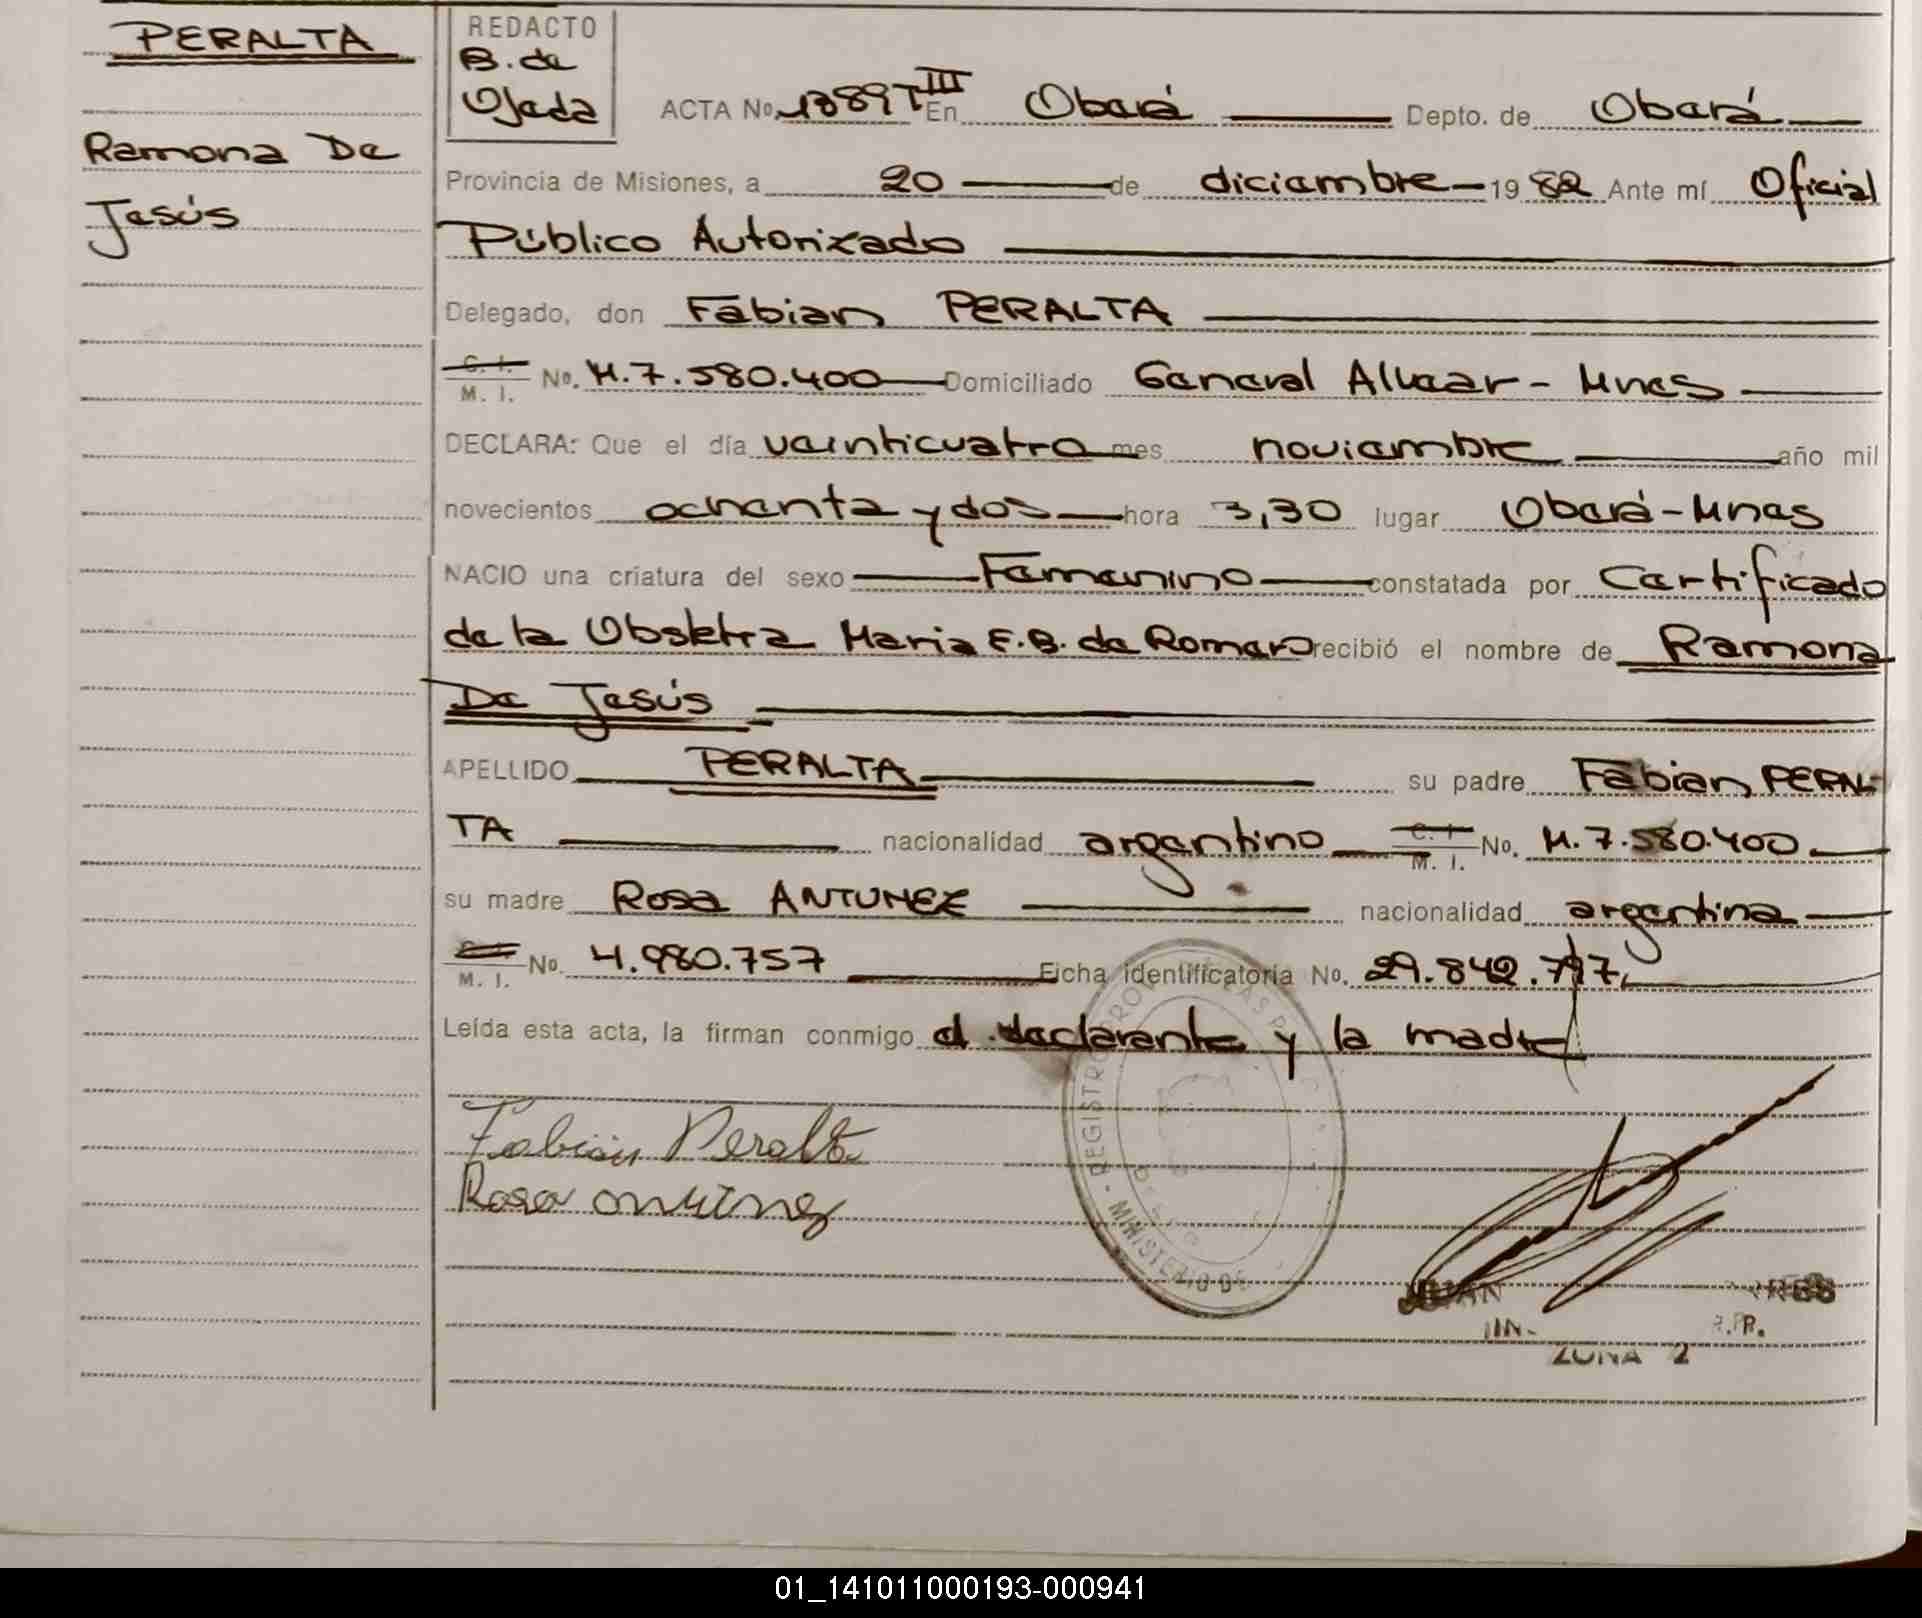 PERALTA
Ramona De
Jesús
REDACTO
B. de
Ojeda
ACTA No. 1389 T III En Oberá Depto. de Oberá
Provincia de Misiones, a 20 de diciembre 19 82 Ante mí Oficial
Público Autorizado
Delegado, don Fabian PERALTA
C. I. M. I. No. M.7.580.400 Domiciliado General Alvear - Mnes
DECLARA: Que el día veinticuatro mes noviembre año mil
novecientos ochenta y dos hora 3,30 lugar Oberá - Mnes
NACIO una criatura del sexo Femenino constatada por Certificado
de la Obstetra Maria E.B. de Romero recibió el nombre de Ramona
De Jesús
APELLIDO PERALTA su padre Fabian PERAL-
TA nacionalidad argentino C. I. M. I. No. M.7.580.400
su madre Rosa ANTUNEZ nacionalidad argentina
M. I. No. 4.980.757 Ficha identificatoria No. 29.842.797
Leída esta acta, la firman conmigo el declarante y la madre
Fabian Peralta
Rosa antunez
REGISTRO PROV DE LAS P
MINISTERIO DE
ZONA 2
01_141011000193-000941